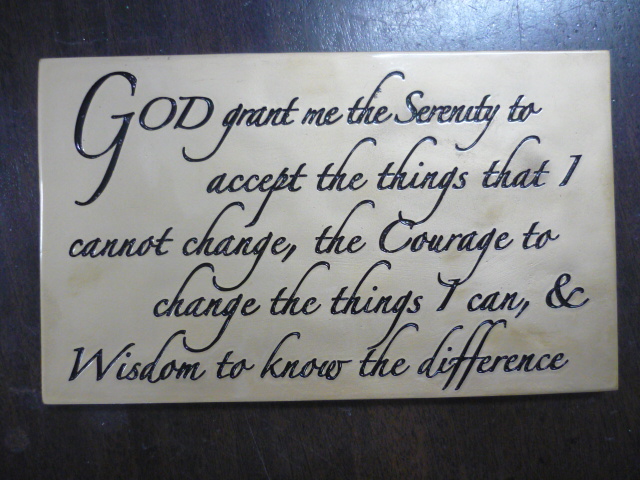 GOD grant me the Serenity to
accept the things that I
cannot change, the Courage to
change the things I can, &
Wisdom to know the difference